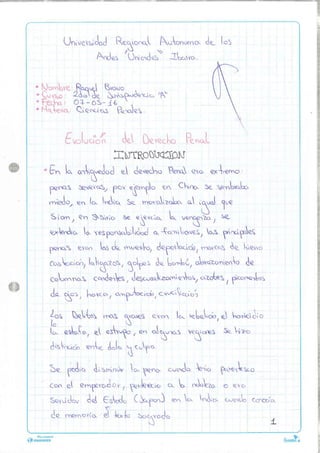 Universidad Regional Autonoma de los
Andes "Uniandes" Ibarra.
* Nombre: Raquel Bravo
* Curso: 2do de Jurisprudencia "A"
* Fecha: 07-05-16
* Materia: Ciencias Penales.
Evolución del Derecho Penal
INTRODUCCION
* En la antigüedad el derecho Penal era extremo
penas severas, por ejemplo en China se sembraba
miedo, en la India se moralizaba al igual que
Sion, en se ejercia la venganza, se
extendia la responsabilidad a familiares, las principales
penas eran las de muerte, deportación, marcas de hierro
castración, latigazos, golpes de bambú, abrazamiento de
columnas candentes, descuartizamientos, azotes,
de ojos, horca, amputación, crucifixión
Los Delitos mas graves eran la rebelión, el homicidio
la estafa, el estrupo, en algunas regiones se hizo
distinción entre dolo y culpa.
Se podia disminuir la pena cuando tenia parentesco
con el emperador, pertenecia a la nobleza o era
servidor del Estado (Japon) en la India cuando conocia
de memoria el texto Sagrado
1